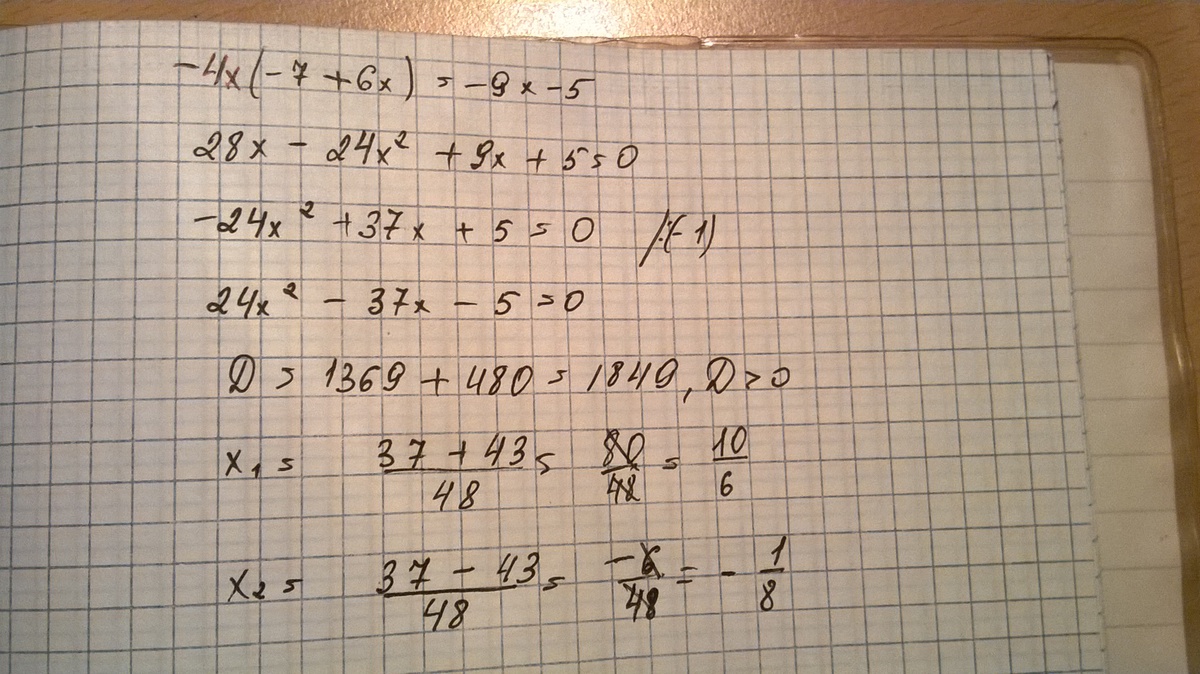 -4x(-7+6x) = -9x-5
28x - 24x² + 9x + 5 = 0
-24x² + 37x + 5 = 0 /:(-1)
24x² - 37x - 5 = 0
D = 1369 + 480 = 1849, D > 0
x₁ = (37 + 43)/48 = 80/48 = 10/6
x₂ = (37 - 43)/48 = -6/48 = - 1/8